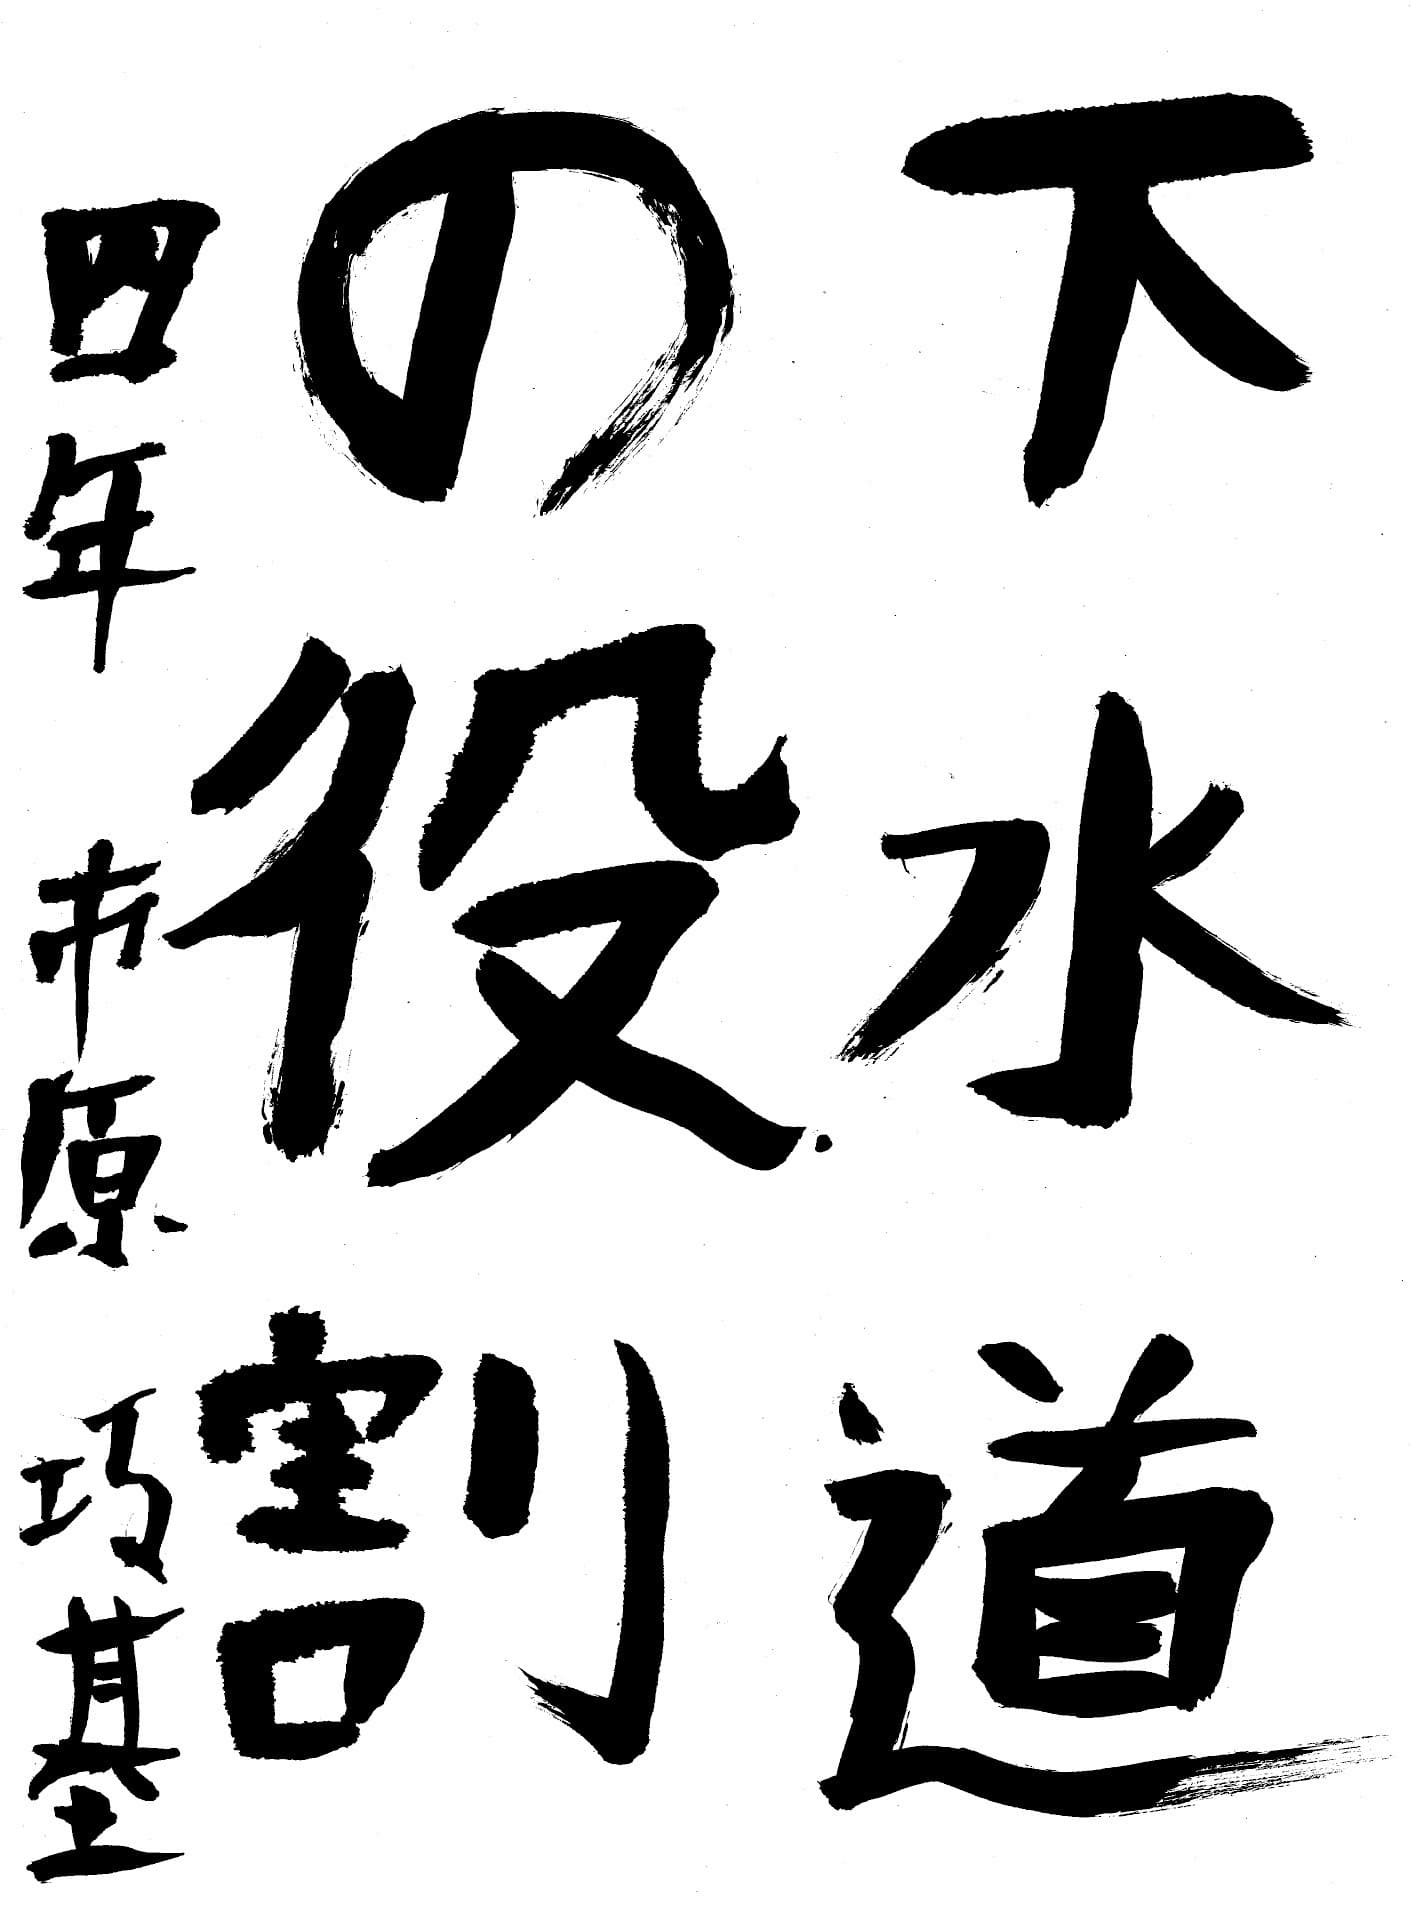 下水道
の役割
四年 市原 巧基